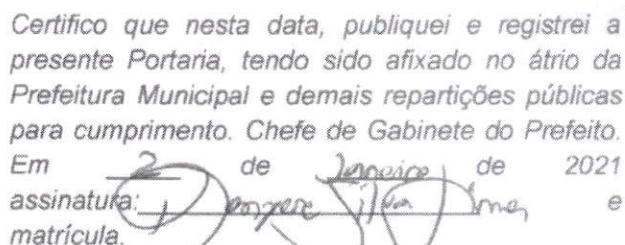 Certifico que nesta data, publiquei e registrei a
presente Portaria, tendo sido afixado no átrio da
Prefeitura Municipal e demais repartições públicas
para cumprimento. Chefe de Gabinete do Prefeito.
Em 2 de Janeiro de 2021
assinatura: e
matrícula.